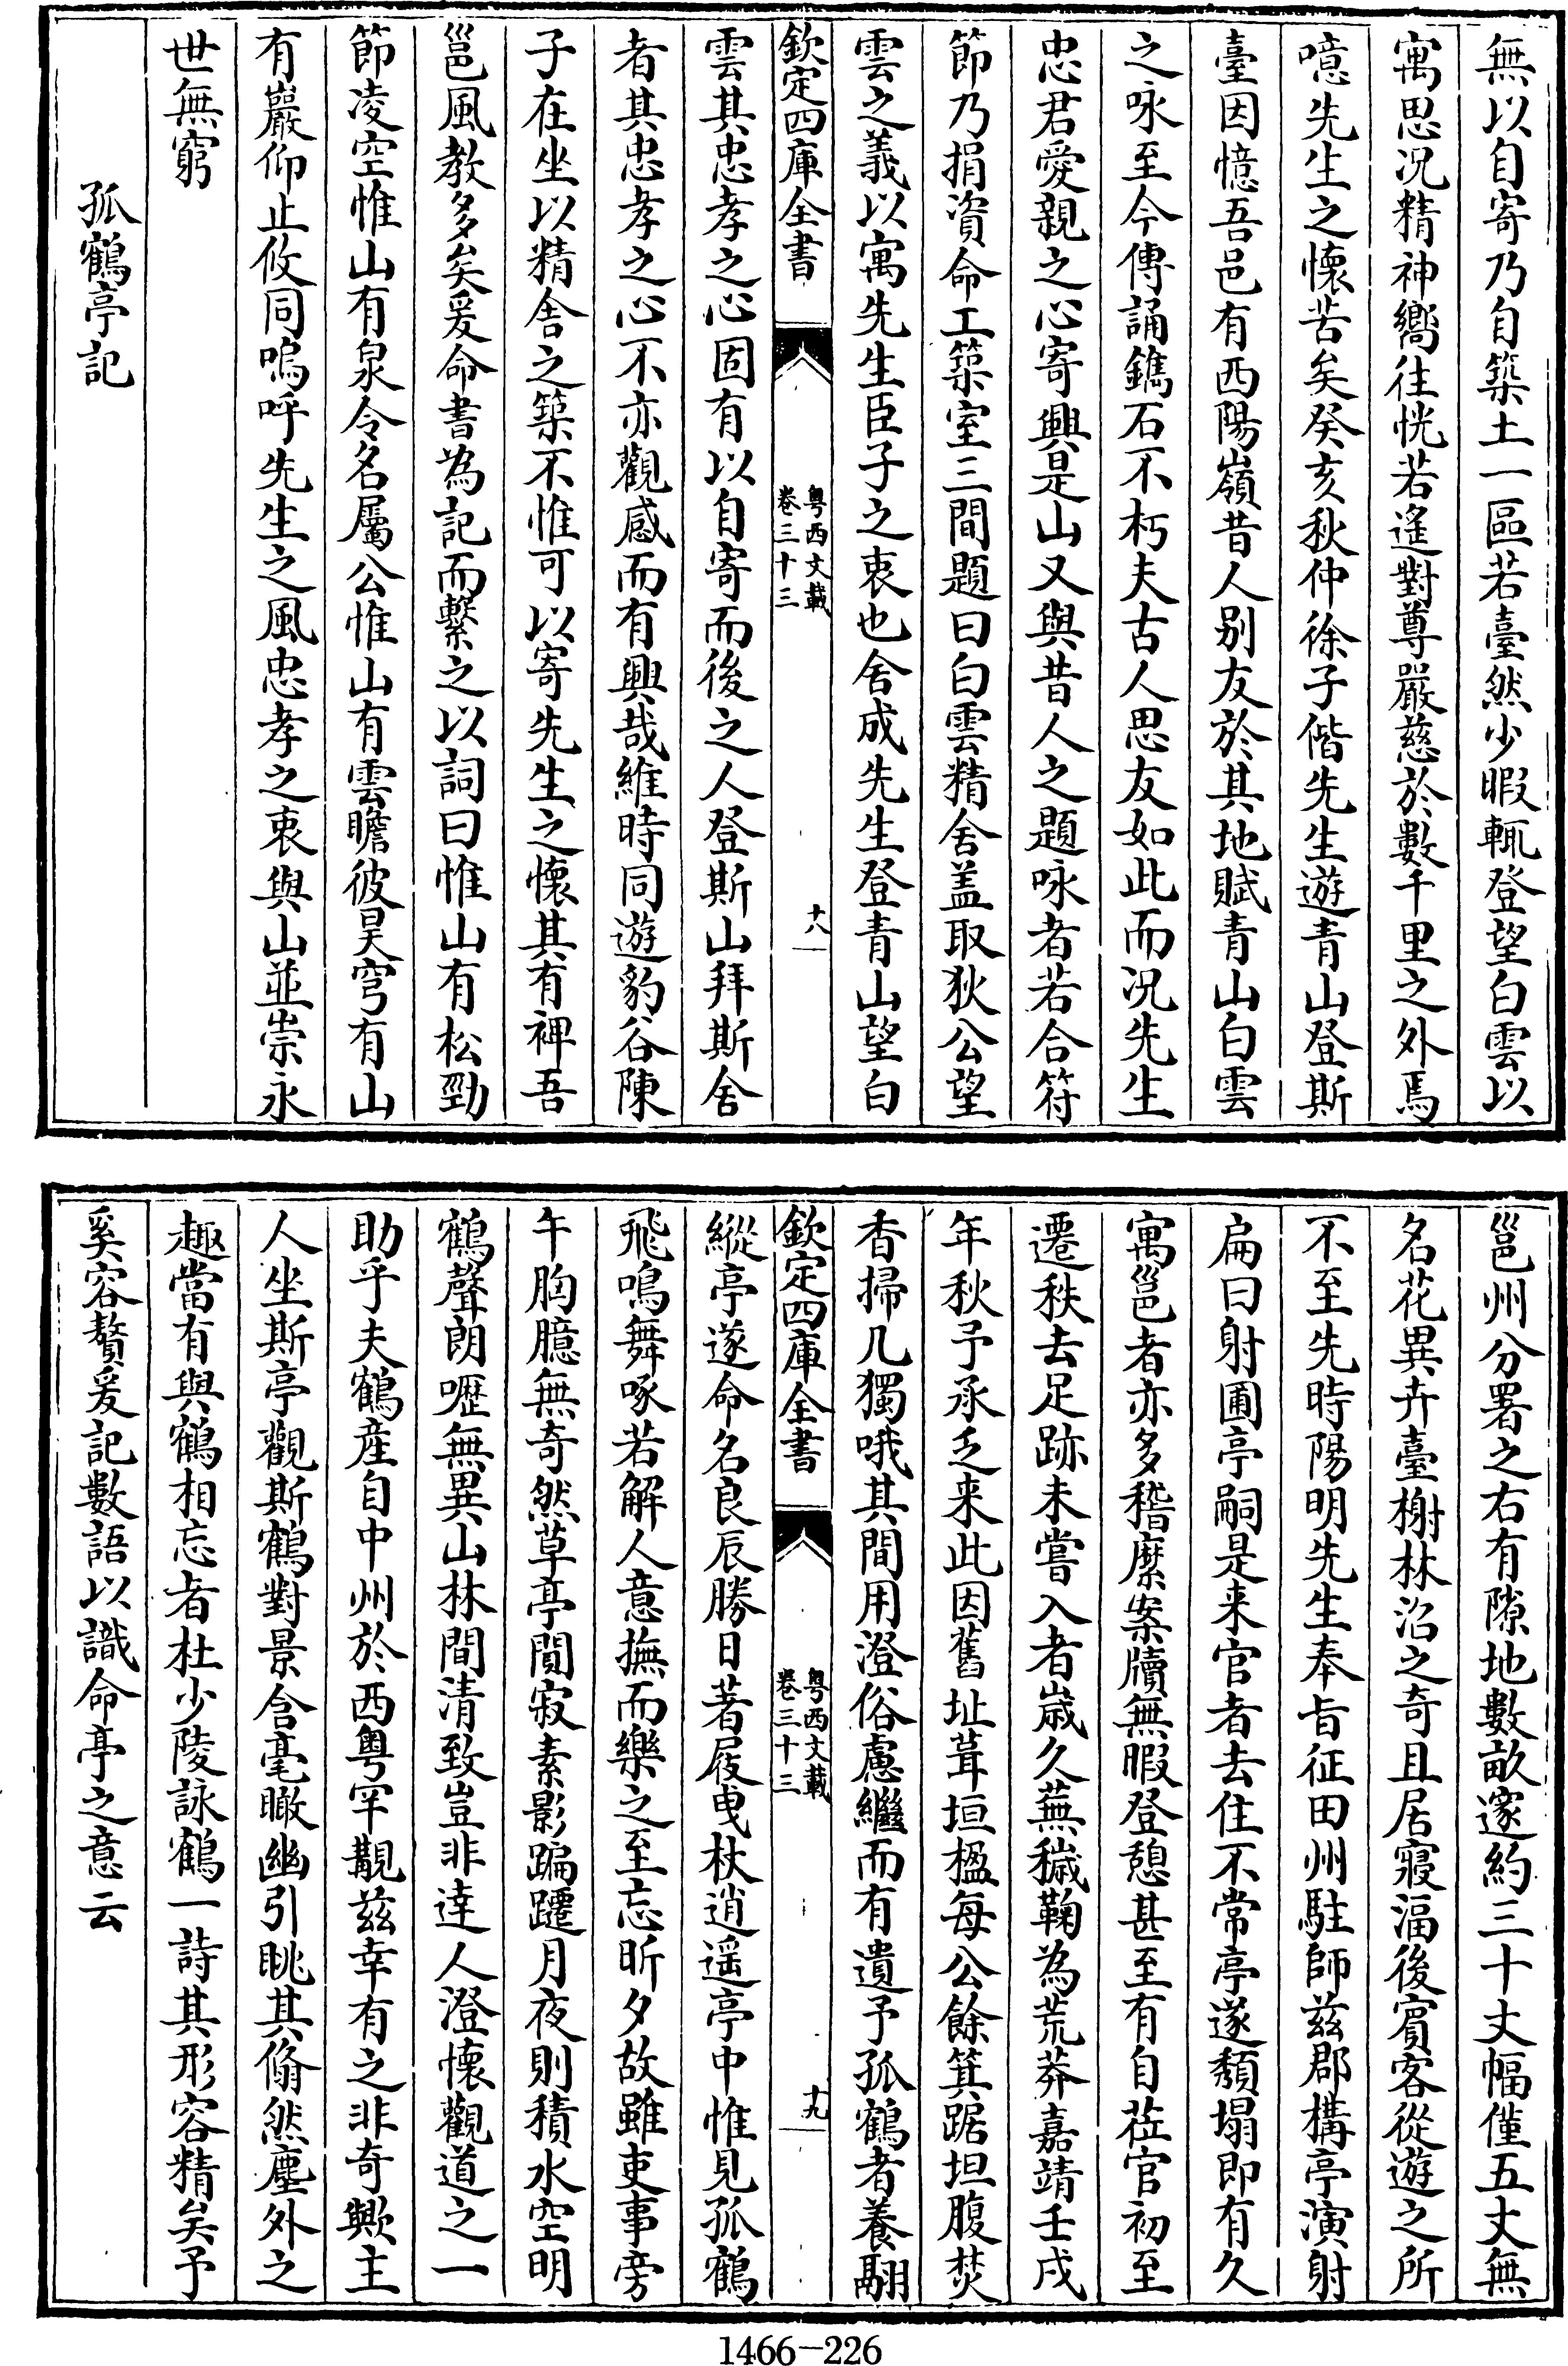 無以自寄乃自築土一區若臺然少暇輒登望白雲以
寓思况精神嚮往恍若遙對尊嚴慈於數千里之外焉
噫先生之懷苦矣癸亥秋仲徐子偕先生遊青山登斯
臺因憶吾邑有西陽嶺昔人别友於其地賦青山白雲
之咏至今傳誦鐫石不朽夫古人思友如此而况先生
忠君愛親之心寄興是山又與昔人之題咏者若合符
節乃捐資命工築室三間題曰白雲精舍盖取狄公望
雲之義以寓先生臣子之衷也舍成先生登青山望白
欽定四庫全書
粤西文載
卷三十三
十八
雲其忠孝之心固有以自寄而後之人登斯山拜斯舍
者其忠孝之心不亦觀感而有興哉維時同遊豹谷陳
子在坐以精舍之築不惟可以寄先生之懷其有裨吾
邕風教多矣爰命書為記而繫之以詞曰惟山有松勁
節凌空惟山有泉令名屬公惟山有雲瞻彼昊穹有山
有巖仰止攸同嗚呼先生之風忠孝之衷與山並崇永
世無窮
孤鶴亭記
邕州分署之右有隙地數畝邃約三十丈幅僅五丈無
名花異卉臺榭林沼之奇且居寢湢後賓客從遊之所
不至先時陽明先生奉旨征田州駐師兹郡構亭演射
扁曰射圃亭嗣是来官者去住不常亭遂頽塌即有久
寓邕者亦多稽縻案牘無暇登憩甚至有自莅官初至
遷秩去足跡未嘗入者歲久蕪穢鞠為荒莽嘉靖壬戌
年秋予承乏来此因舊址葺垣楹每公餘箕踞坦腹焚
香掃几獨哦其間用澄俗慮繼而有遺予孤鶴者養翮
欽定四庫全書
粤西文載
卷三十三
十九
縱亭遂命名良辰勝日著屐曳杖逍遥亭中惟見孤鶴
飛鳴舞啄若解人意撫而樂之至忘昕夕故雖吏事旁
午胸臆無奇然草亭閒寂素影蹁躚月夜則積水空明
鶴聲朗嚦無異山林間清致豈非達人澄懷觀道之一
助乎夫鶴産自中州於西粤罕覩兹幸有之非奇歟主
人坐斯亭觀斯鶴對景含毫瞰幽引眺其翛然塵外之
趣當有與鶴相忘者杜少陵詠鶴一詩其形容精矣予
奚容贅爰記數語以識命亭之意云
1466-226